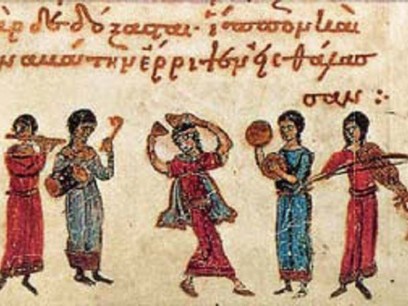 ὰρ δεδόξασται· ἵππον καὶ
ναβάτην ἔρριψεν εἰς θάλασ
σαν :